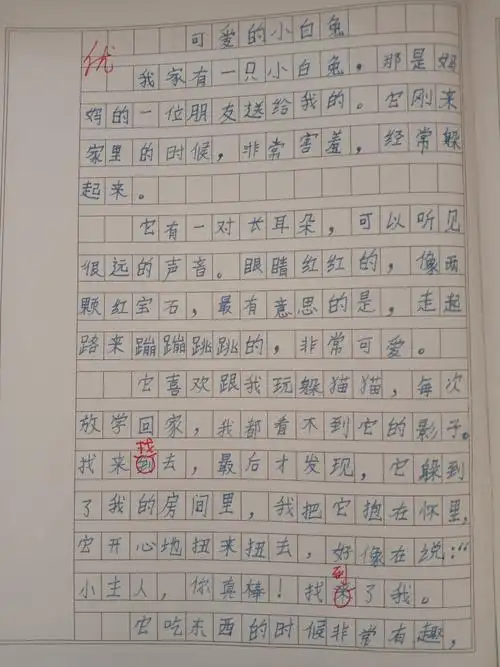 可爱的小白兔
优
我家有一只小白兔。那是妈
妈的一位朋友送给我的。它刚来
家里的时候，非常害羞，经常躲
起来。
它有一对长耳朵，可以听见
很远的声音。眼睛红红的，像两
颗红宝石，最有意思的是，走起
路来蹦蹦跳跳的，非常可爱。
它喜欢跟我玩躲猫猫，每次
放学回家，我都看不到它的影子。
找
找来到去，最后才发现，它躲到
了我的房间里，我把它抱在怀里，
它开心地扭来扭去，好像在说：“
到
小主人，你真棒！找来了我。
它吃东西的时候非常有趣，